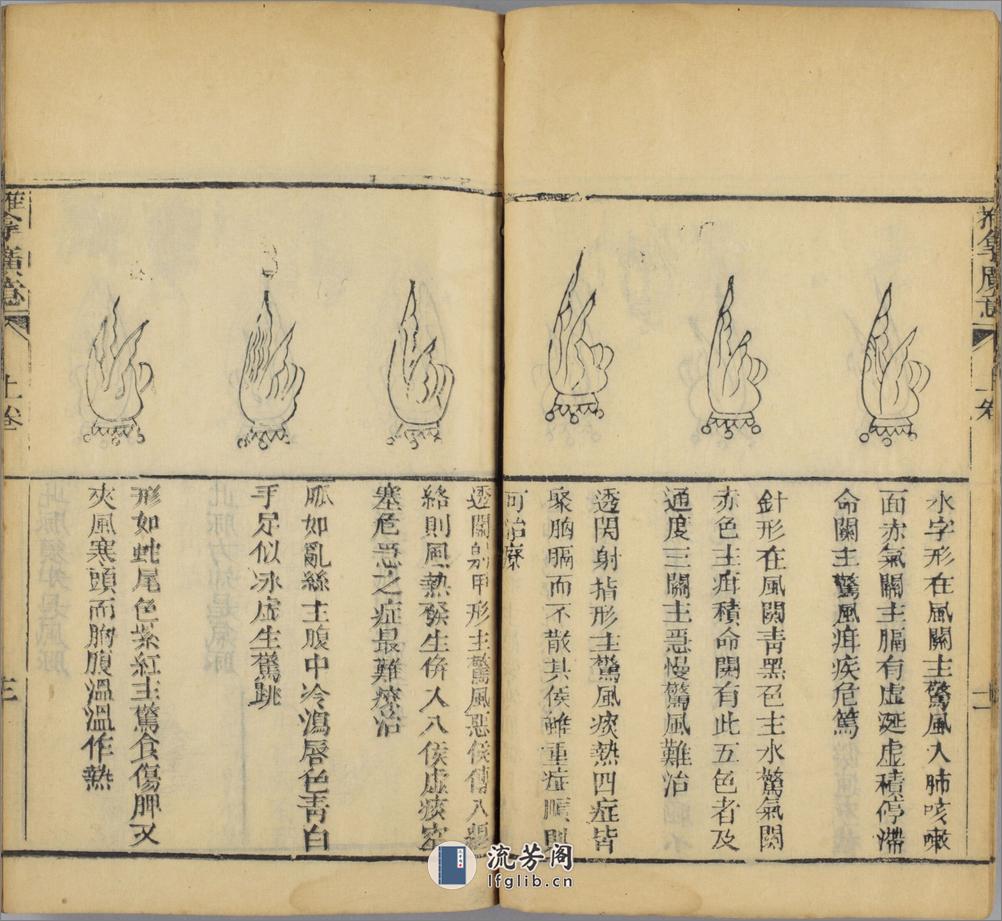 推拿廣意
上卷
二
水字形在風關主驚風入肺咳嗽
面赤氣關主膈有虛涎虛積停滯
命關主驚風疳疾危篤
針形在風關青黑色主水驚氣關
赤色主疳積命關有此五色者及
通度三關主惡慢驚風難治
透關射指形主驚風痰熱四症皆
聚胸膈而不散其候雖重症順則
可治療
透關射甲形主驚風惡候傳入經
絡則風熱發生併入八候虛痰窒
塞危惡之症最難療治
脈如亂絲主腹中冷瀉唇色青白
手足似冰虛生驚跳
形如蛇尾色紫紅主驚食傷脾又
夾風寒頭而胸腹溫溫作熱
推拿廣意
上卷
三
流芳阁
lfglib.cn